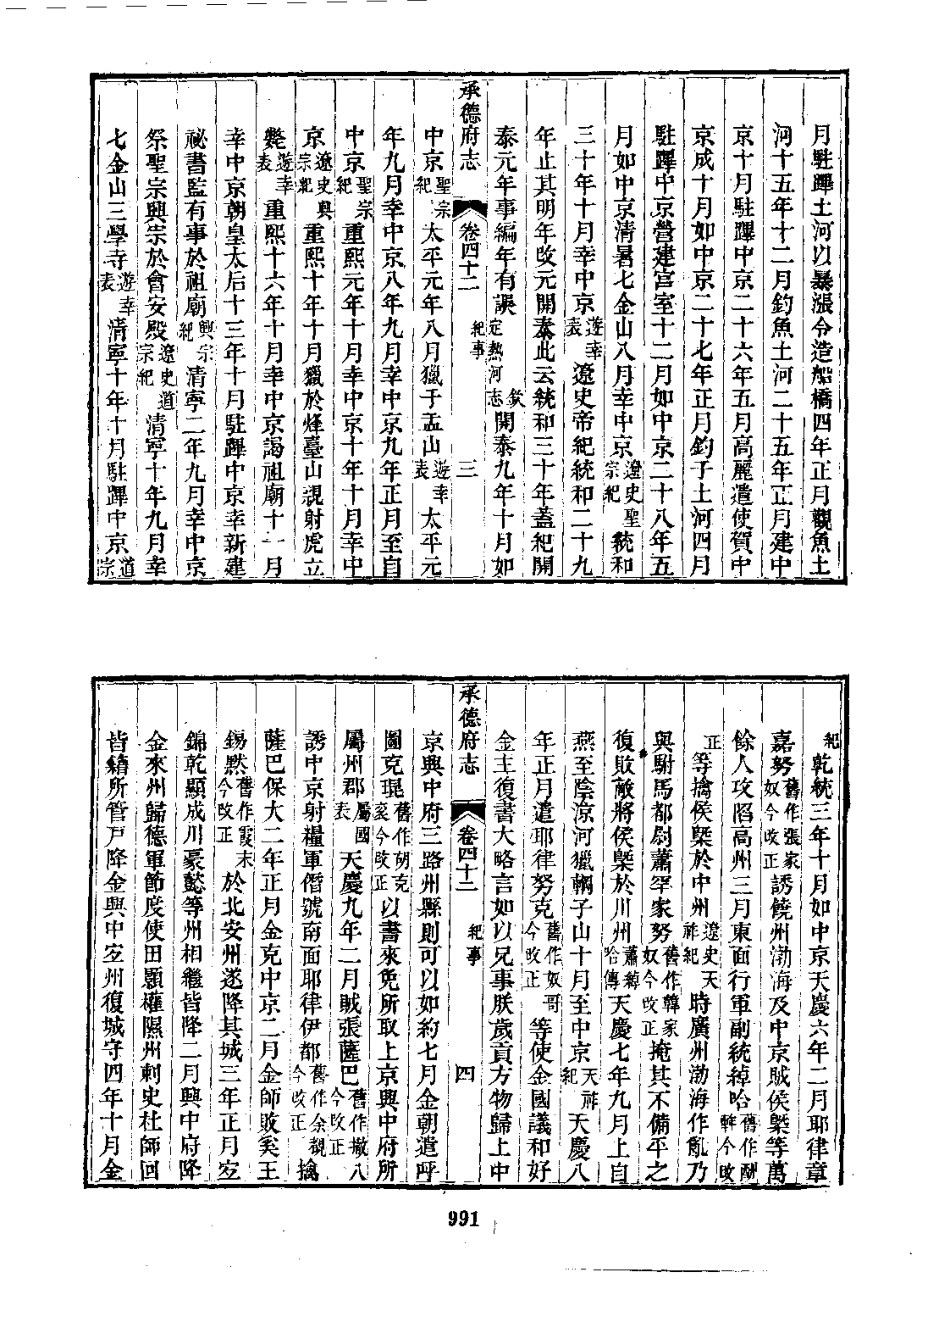 月駐蹕土河以暴漲令造船橋四年正月觀魚土
河十五年十二月釣魚土河二十五年正月建中
京十月駐蹕中京二十六年五月高麗遣使賀中
京成十月如中京二十七年正月鈞子土河四月
駐蹕中京營建宮室十二月如中京二十八年五
月如中京清暑七金山八月幸中京遼史聖宗紀統和
三十年十月幸中京遊幸表遼史帝紀統和二十九
年止其明年改元開泰此云統和三十年蓋紀開
泰元年事編年有誤欽定熱河志開泰九年十月如
承德府志 卷四十二 紀事 三
中京聖宗紀太平元年八月獵于盂山遊幸表太平元
年九月幸中京八年九月幸中京九年正月至自
中京聖宗紀重熙元年十月幸中京十年十月幸中
京遼史興宗紀重熙十年十月獵於烽臺山親射虎立
斃遊幸表重熙十六年十月幸中京謁祖廟十一月
幸中京朝皇太后十三年十月駐蹕中京幸新建
祕書監有事於祖廟興宗紀清寧二年九月幸中京
祭聖宗興宗於會安殿遼史道宗紀清寧十年九月幸
七金山三學寺遊幸表清寧十年十月駐蹕中京道宗
紀乾統三年十月如中京天慶六年二月耶律章
嘉努舊作張家奴今改正誘饒州渤海及中京賊侯槩等萬
餘人攻陷高州三月東面行軍副統綽哈舊作酬斡今改
正等擒侯槩於中州遼史天祚紀時廣州渤海作亂乃
與駙馬都尉蕭罕家努舊作韓家奴今改正掩其不備平之
復敗敵將侯槩於川州蕭綽哈傳天慶七年九月上自
燕至陰涼河獵輞子山十月至中京天祚紀天慶八
年正月遣耶律努克舊作奴哥今改正等使金國議和好
金主復書大略言如以兄事朕歲貢方物歸上中
承德府志 卷四十二 紀事 四
京興中府三路州縣則可以如約七月金朝遣呼
圖克琨舊作胡突袞今改正以書來免所取上京興中府所
屬州郡屬國表天慶九年二月賊張薩巴舊作撒八今改正
誘中京射糧軍僭號南面耶律伊都舊作余覩今改正擒
薩巴保大二年正月金克中京二月金師敗奚王
錫默舊作霞末今改正於北安州遂降其城三年正月宜
錦乾顯成川豪懿等州相繼皆降二月興中府降
金來州歸德軍節度使田顥權隰州刺史杜師回
皆籍所管戶降金興中宜州復城守四年十月金
991